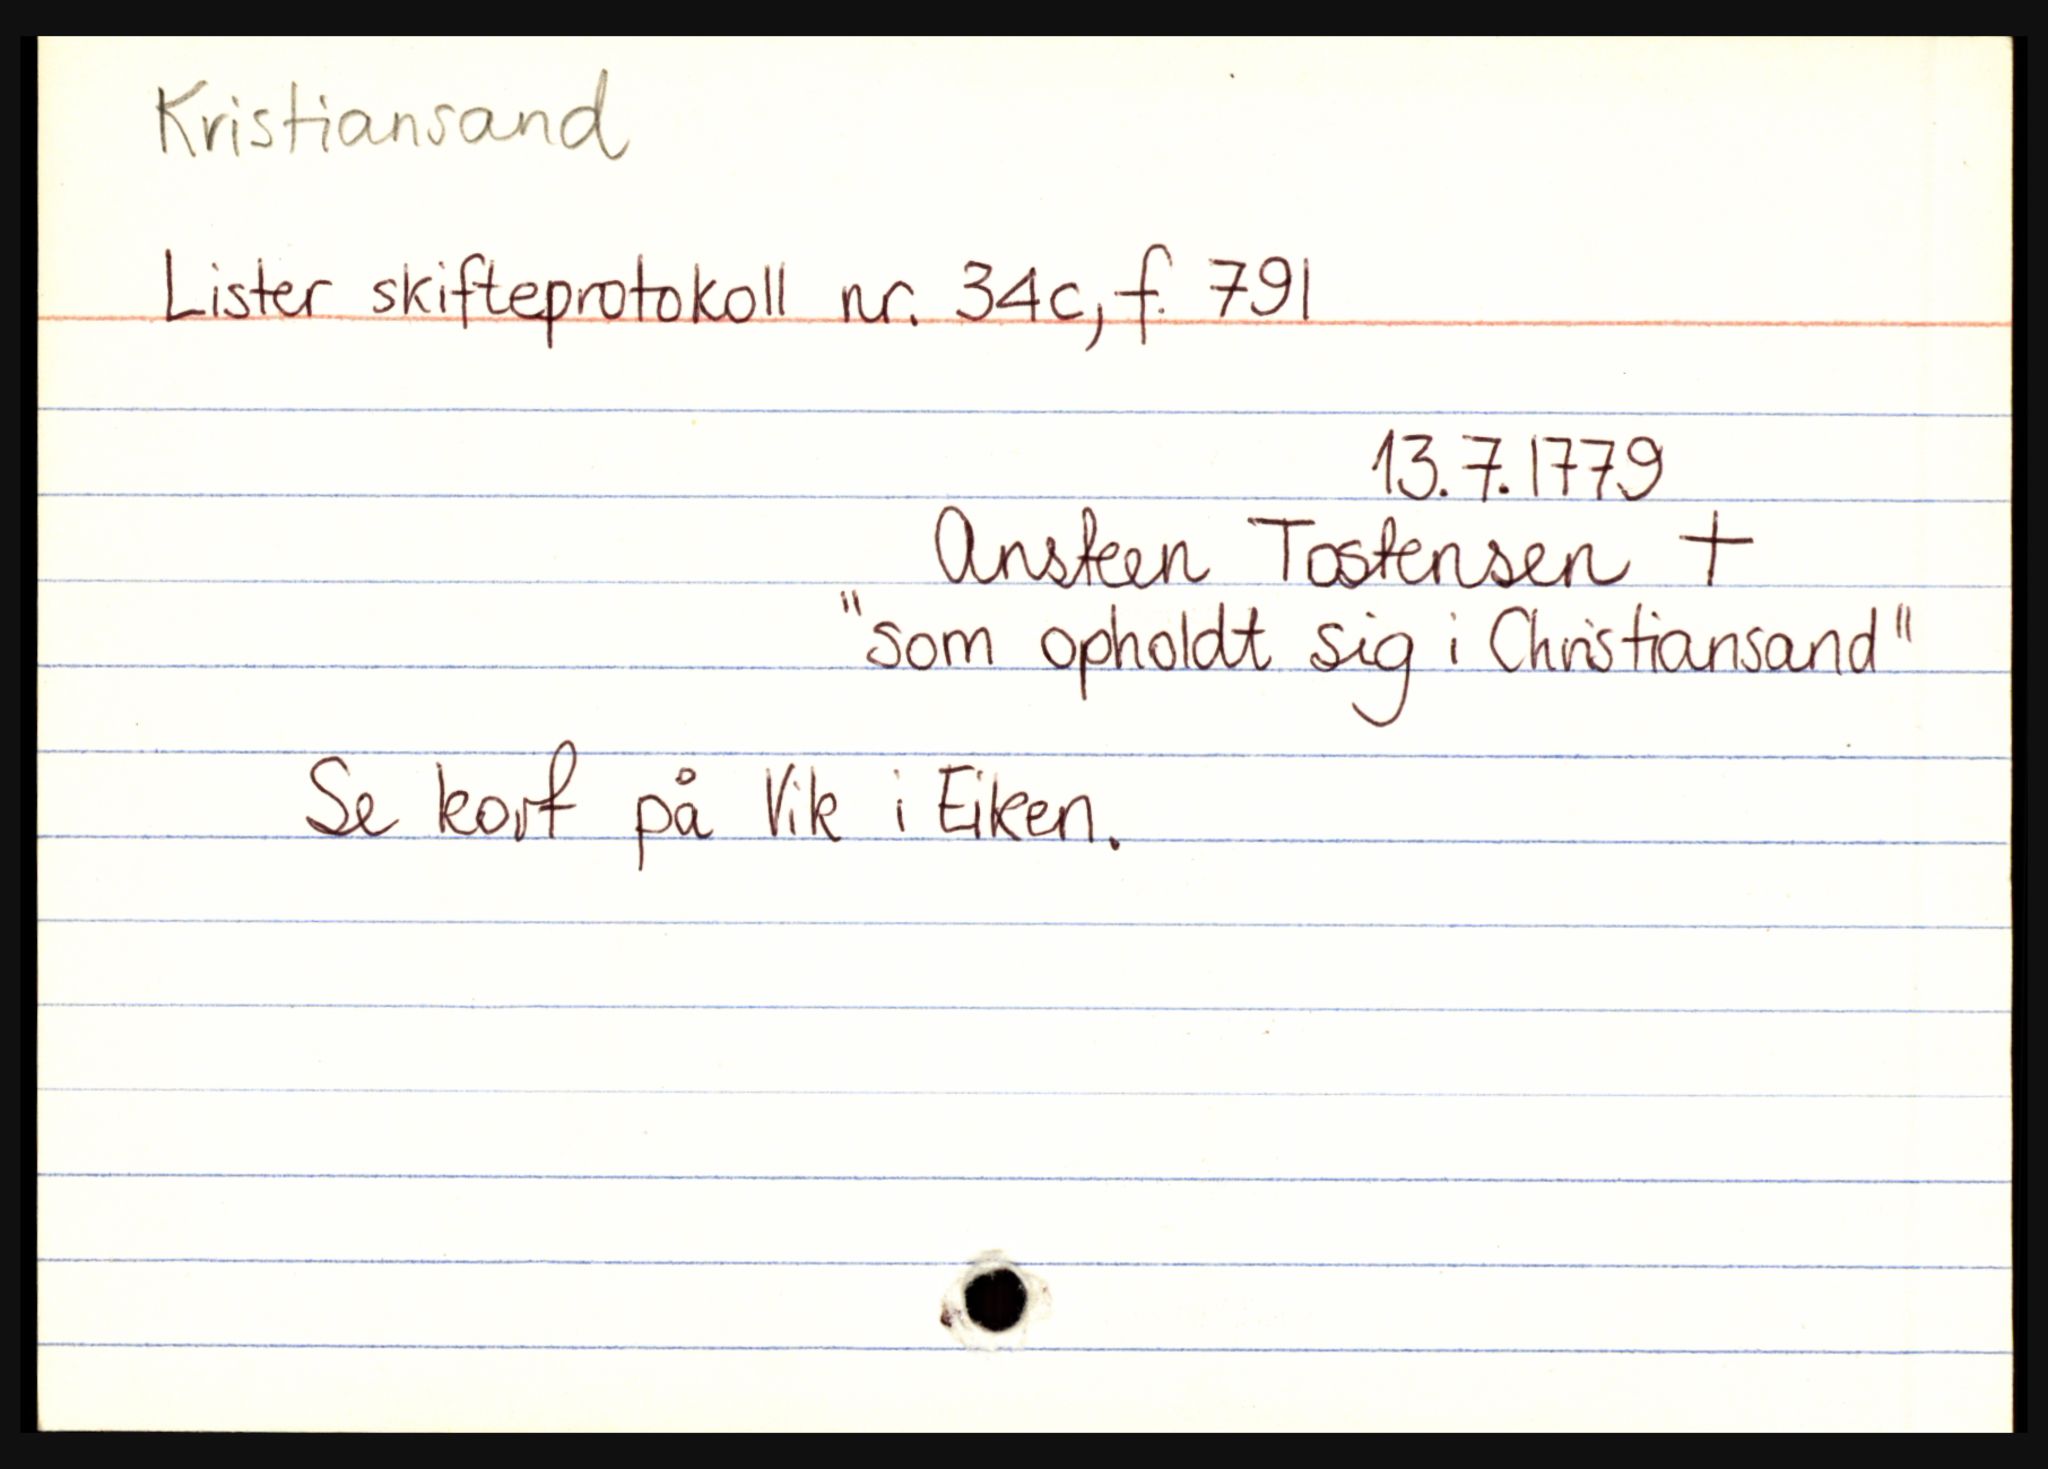 Kristiansand
Lister skifteprotokoll nr. 34c, f. 791
13.7.1779
Ansteen Tostensen †
"som opholdt sig i Christiansand"
Se kort på Vik i Eiken.